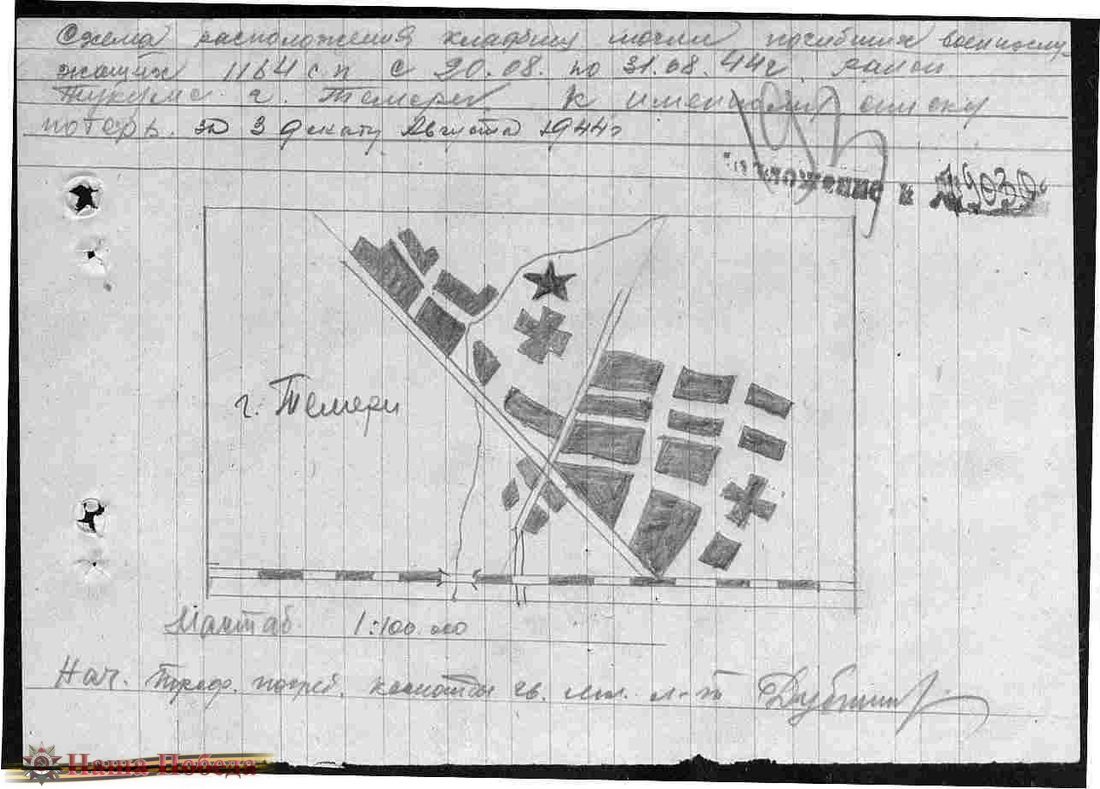 Схема расположения кладбищ могил погибших военнослу-
жащих 1164 с.п с 20.08. по 31.08.44г район
Тукумс г. Темери К именному списку
потерь. за 3 декаду Августа 1944г
Приложение к №9030с
г. Темери
Маштаб 1:100.000
Нач. Троф. погреб. команды гв. мл. л-т
Наша Победа